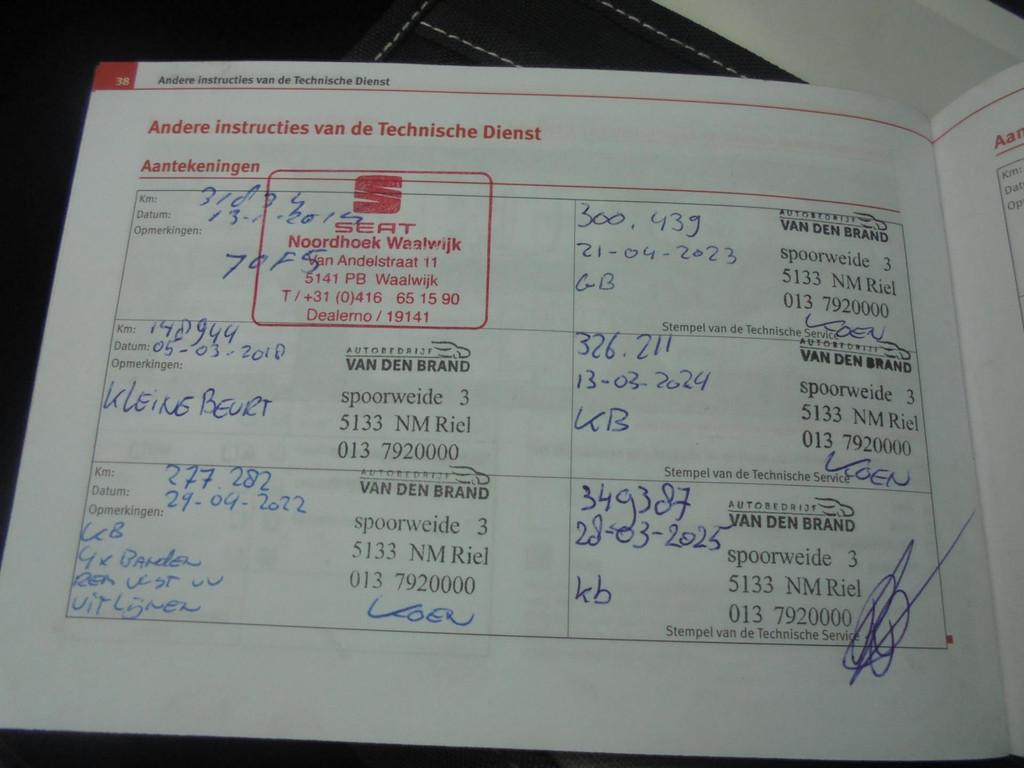 38 Andere instructies van de Technische Dienst
Andere instructies van de Technische Dienst
Aantekeningen
Km:
Datum:
Opmerkingen:
SEAT
Noordhoek Waalwijk
Van Andelstraat 11
5141 PB Waalwijk
T / +31 (0)416 65 15 90
Dealerno / 19141
Km: 148944
Datum: 05-03-2018
Opmerkingen:
KLEINE BEURT
AUTOBEDRIJF
VAN DEN BRAND
spoorweide 3
5133 NM Riel
013 7920000
Km: 277.282
Datum: 29-04-2022
Opmerkingen:
KB
4x BANDEN
UITLIJNEN
AUTOBEDRIJF
VAN DEN BRAND
spoorweide 3
5133 NM Riel
013 7920000
KOEN
300.439
21-04-2023
GB
AUTOBEDRIJF
VAN DEN BRAND
spoorweide 3
5133 NM Riel
013 7920000
KOEN
Stempel van de Technische Service
326.211
13-03-2024
KB
AUTOBEDRIJF
VAN DEN BRAND
spoorweide 3
5133 NM Riel
013 7920000
KOEN
Stempel van de Technische Service
349387
28-03-2025
kb
AUTOBEDRIJF
VAN DEN BRAND
spoorweide 3
5133 NM Riel
013 7920000
Stempel van de Technische Service
Km: